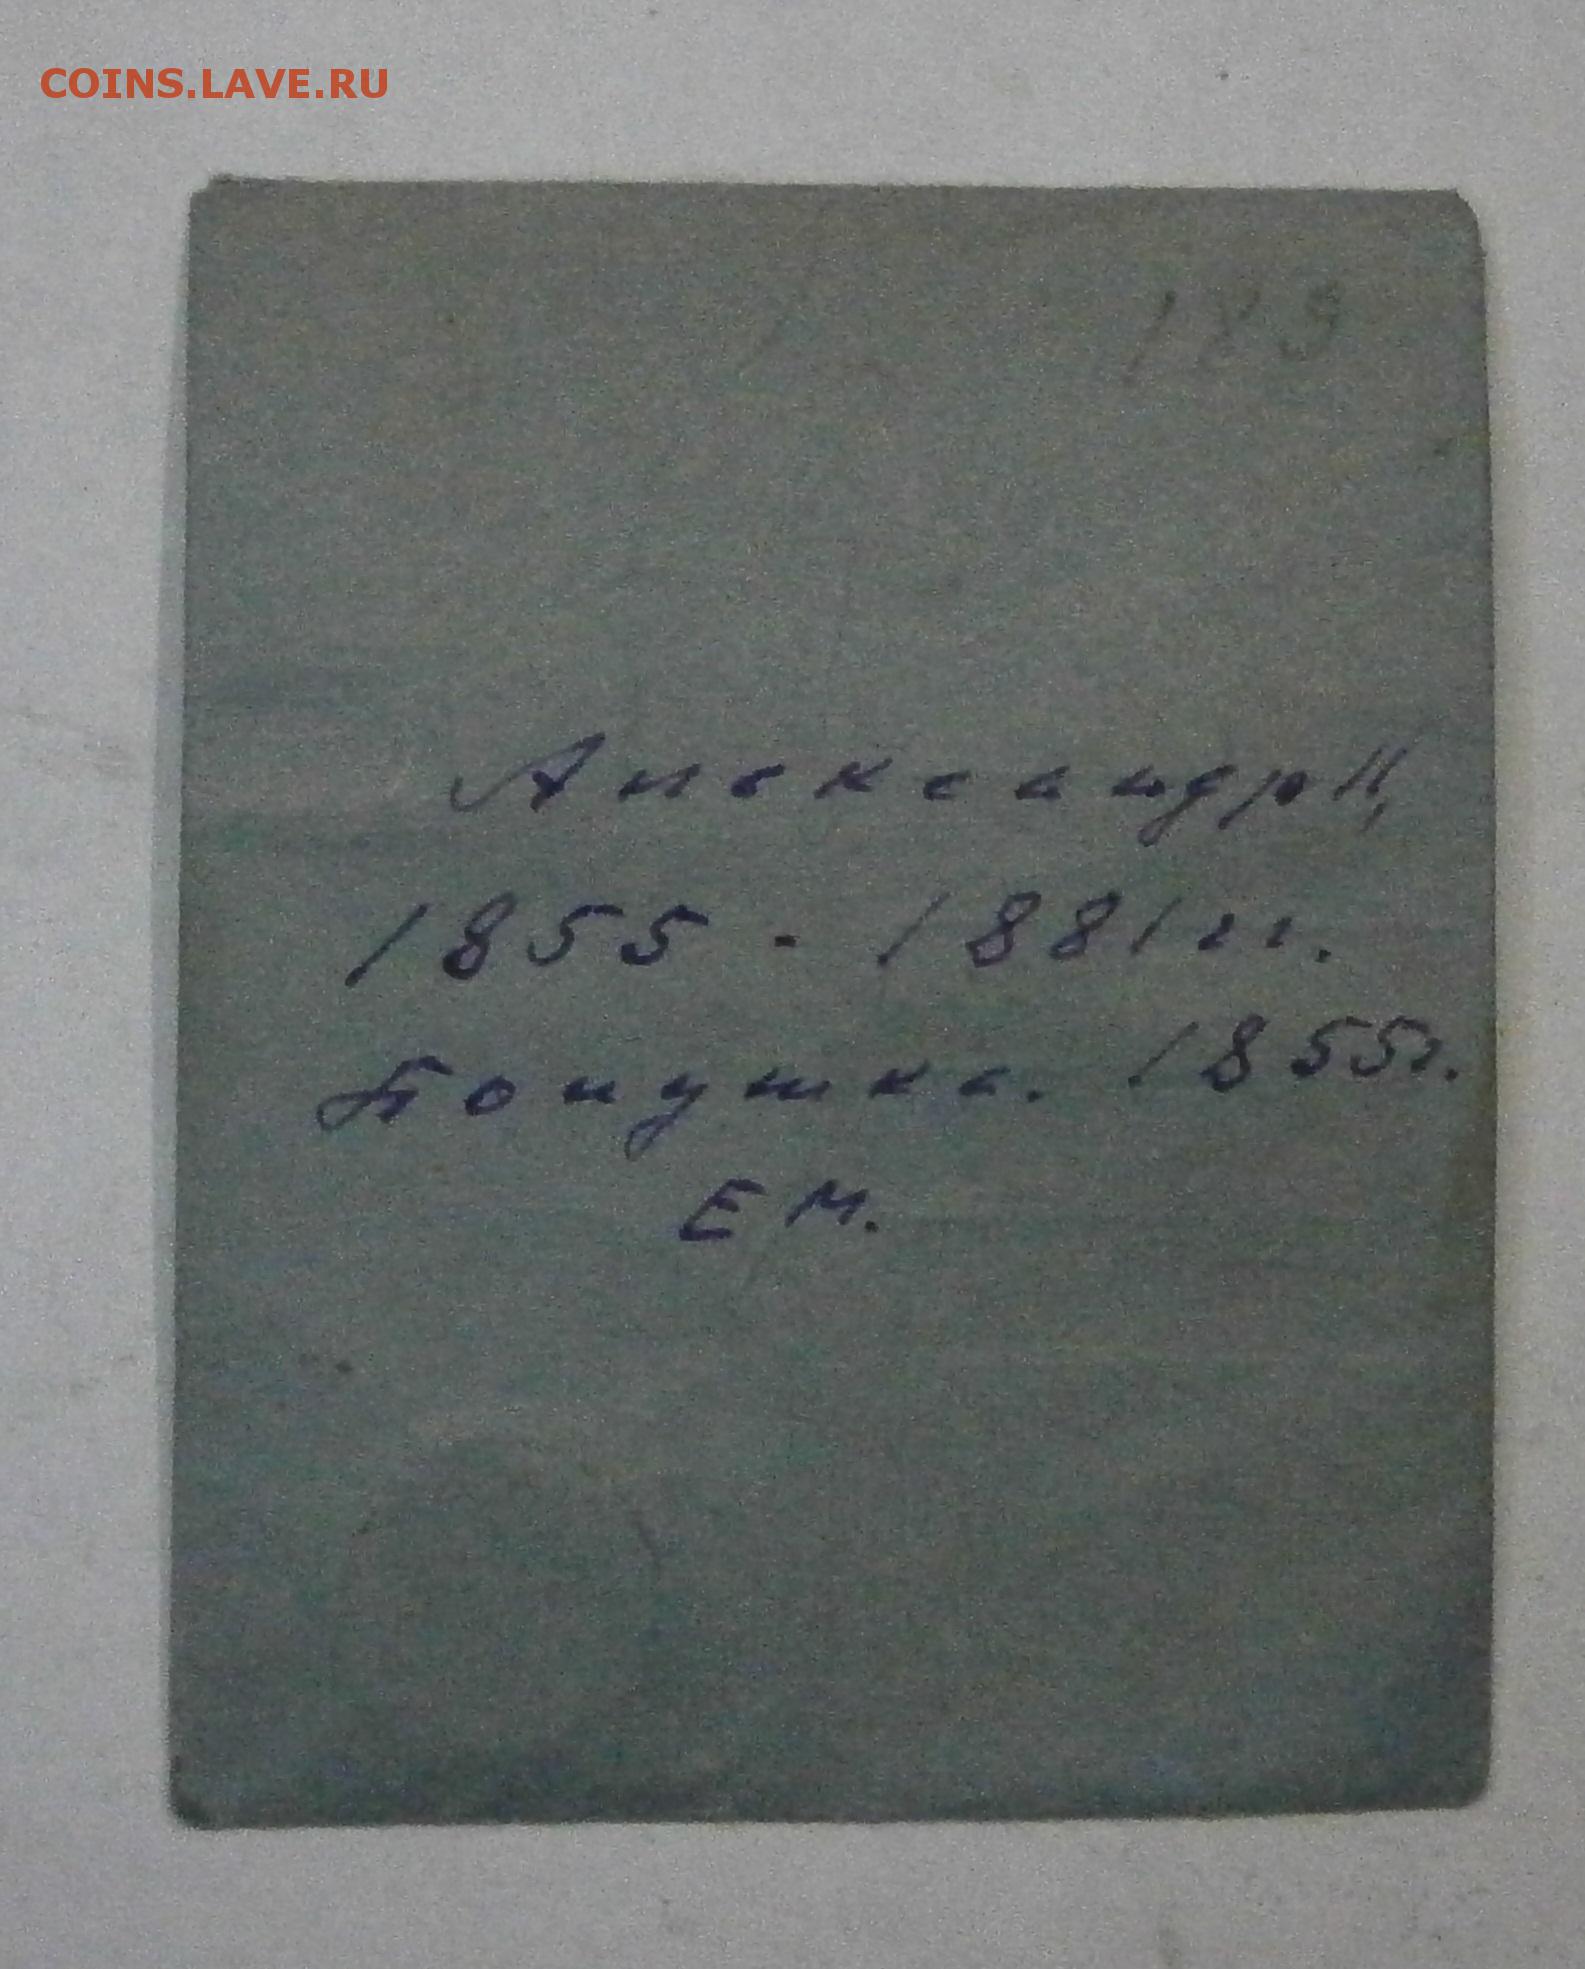 COINS.LAVE.RU
189
Александр II,
1855 - 1881 гг.
Полушка. 1855г.
ЕМ.